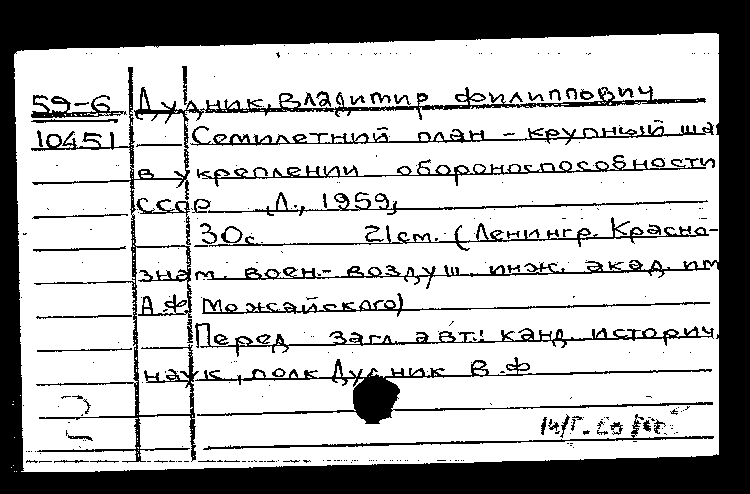 59-6 Дудник, Владимир Филиппович
10451 Семилетний план - крупный шаг
в укреплении обороноспособности
СССР Л., 1959,
30с. 21см. (Ленингр. Красно-
знам. воен.- воздуш. инж. акад. им
А.Ф. Можайского)
Перед загл. авт.: канд. историч.
наук, полк Дудник В.Ф
2